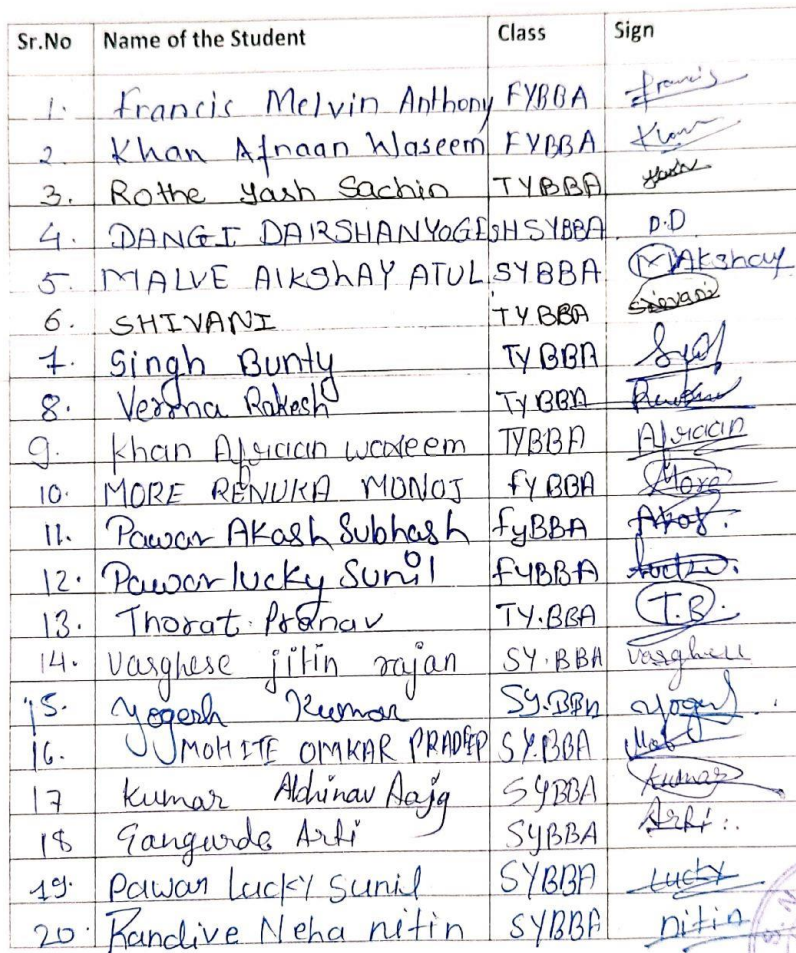 Sr.No Name of the Student Class Sign
1. Francis Melvin Anthony FYBBA Francis
2. Khan Afnaan Waseem FYBBA Khan
3. Rothe Yash Sachin TYBBA Yash
4. DANGI DARSHAN YOGESH SYBBA D.D
5. MALVE AKSHAY ATUL SYBBA M Akshay
6. SHIVANI TYBBA Shivani
7. Singh Bunty TYBBA
8. Verma Rakesh TYBBA
9. Khan Afnaan waseem TYBBA Afnaan
10. MORE RENUKA MONOJ FYBBA More
11. Pawar Akash Subhash fyBBA
12. Pawar lucky Sunil FYBBA
13. Thorat Pranav TY.BBA T.B.
14. Varghese jitin rajan SY.BBA Varghese
15. Yogesh Kumar SY.BBA
16. MOHITE OMKAR PRADEEP SY.BBA
17 Kumar Abhinav SYBBA Kumar
18 Gangurde Arti SYBBA Arti
19. Pawar Lucky Sunil SYBBA Lucky
20. Randive Neha nitin SYBBA nitin